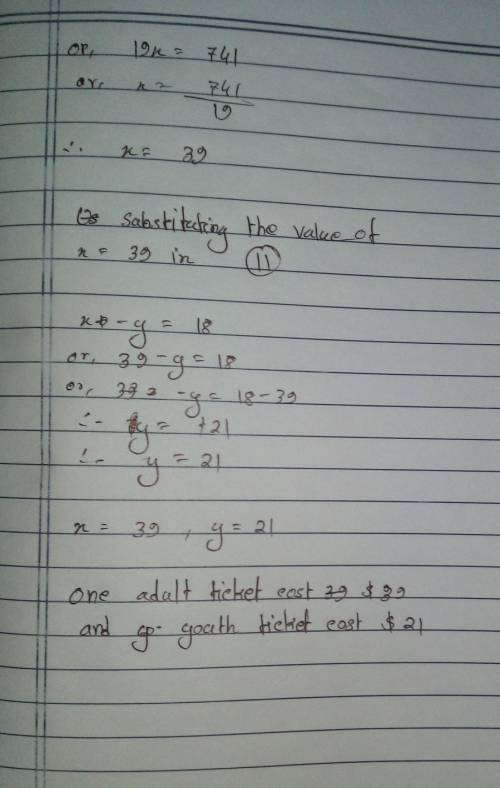 or, 19x = 741
or, x = 741
19
∴ x = 39
substituting the value of
x = 39 in (11)
x - y = 18
or, 39 - y = 18
or, -y = 18 - 39
∴ y = +21
∴ y = 21
x = 39 , y = 21
One adult ticket cost $ 39
and youth ticket cost $ 21